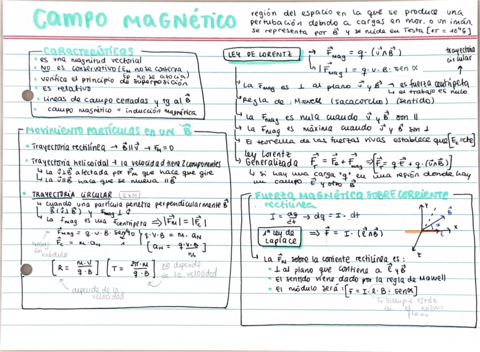 CAMPO MAGNÉTICO
región del espacio en la que se produce una
perturbación debido a cargas en mov. o un imán
se representa por B⃗ y se mide en Tesla [1T = 10⁴G]
CARACTERÍSTICAS
• es una magnitud vectorial
• NO es conservativo (Em no se conserva
Ep no se asocia)
• verifica el principio de superposición
• es relativo
• líneas de campo cerradas y tg al B⃗
• campo magnético = inducción magnética
MOVIMIENTO PARTÍCULAS EN UN B⃗
• Trayectoria rectilínea → B⃗ ∥ v⃗ → Fm = 0
• Trayectoria helicoidal → la velocidad tiene 2 componentes
↳ la v⃗⊥B⃗ afectada por Fm que hace que gire
↳ la v⃗∥B⃗ hace que se mueva ∥B⃗
• TRAYECTORIA CIRCULAR
↳ cuando una partícula penetra perpendicularmente B⃗
B⃗ (v⃗⊥B⃗) y Fmag ⊥ v⃗
↳ la Fmag es una centrípeta → |F⃗m| = |F⃗c|
Fmag = q · v · B · sen90
F⃗c = m · aN
q · v · B = m · aN
[aN = q·v·B / m]
en módulo
[R = m·v / q·B] [T = 2π·m / q·B]
NO depende de la velocidad
depende de la velocidad
LEY DE LORENTZ
→ F⃗mag = q · (v⃗∧B⃗)
→ |F⃗mag| = q · v · B · sen α
trayectoria circular
↳ La Fmag es ⊥ al plano v⃗ y B⃗ → es fuerza centrípeta
↳ el trabajo es nulo
↳ Regla de Maxwell (sacacorcho) (sentido)
↳ La Fmag es nula cuando v⃗ y B⃗ son ∥
↳ La Fmag es máxima cuando v⃗ y B⃗ son ⊥
↳ El teorema de las fuerzas vivas establece que [Ec cte]
Ley Lorentz
Generalizada
F⃗r = F⃗e + F⃗mag → [F⃗r = q·E⃗ + q·(v⃗∧B⃗)]
↳ si hay una carga 'q' en una región donde hay
un campo E⃗ y otro B⃗
FUERZA MAGNÉTICA SOBRE CORRIENTE
rectilínea
I = dq/dt → dq = I · dt
1ª ley de Laplace
→ F⃗ = I · (ℓ⃗∧B⃗)
↳ La F⃗m sobre la corriente rectilínea es:
• ⊥ al plano que contiene a ℓ⃗ y B⃗
• El sentido viene dado por la regla de Maxwell
• El módulo será: [F = I·ℓ·B·senα]